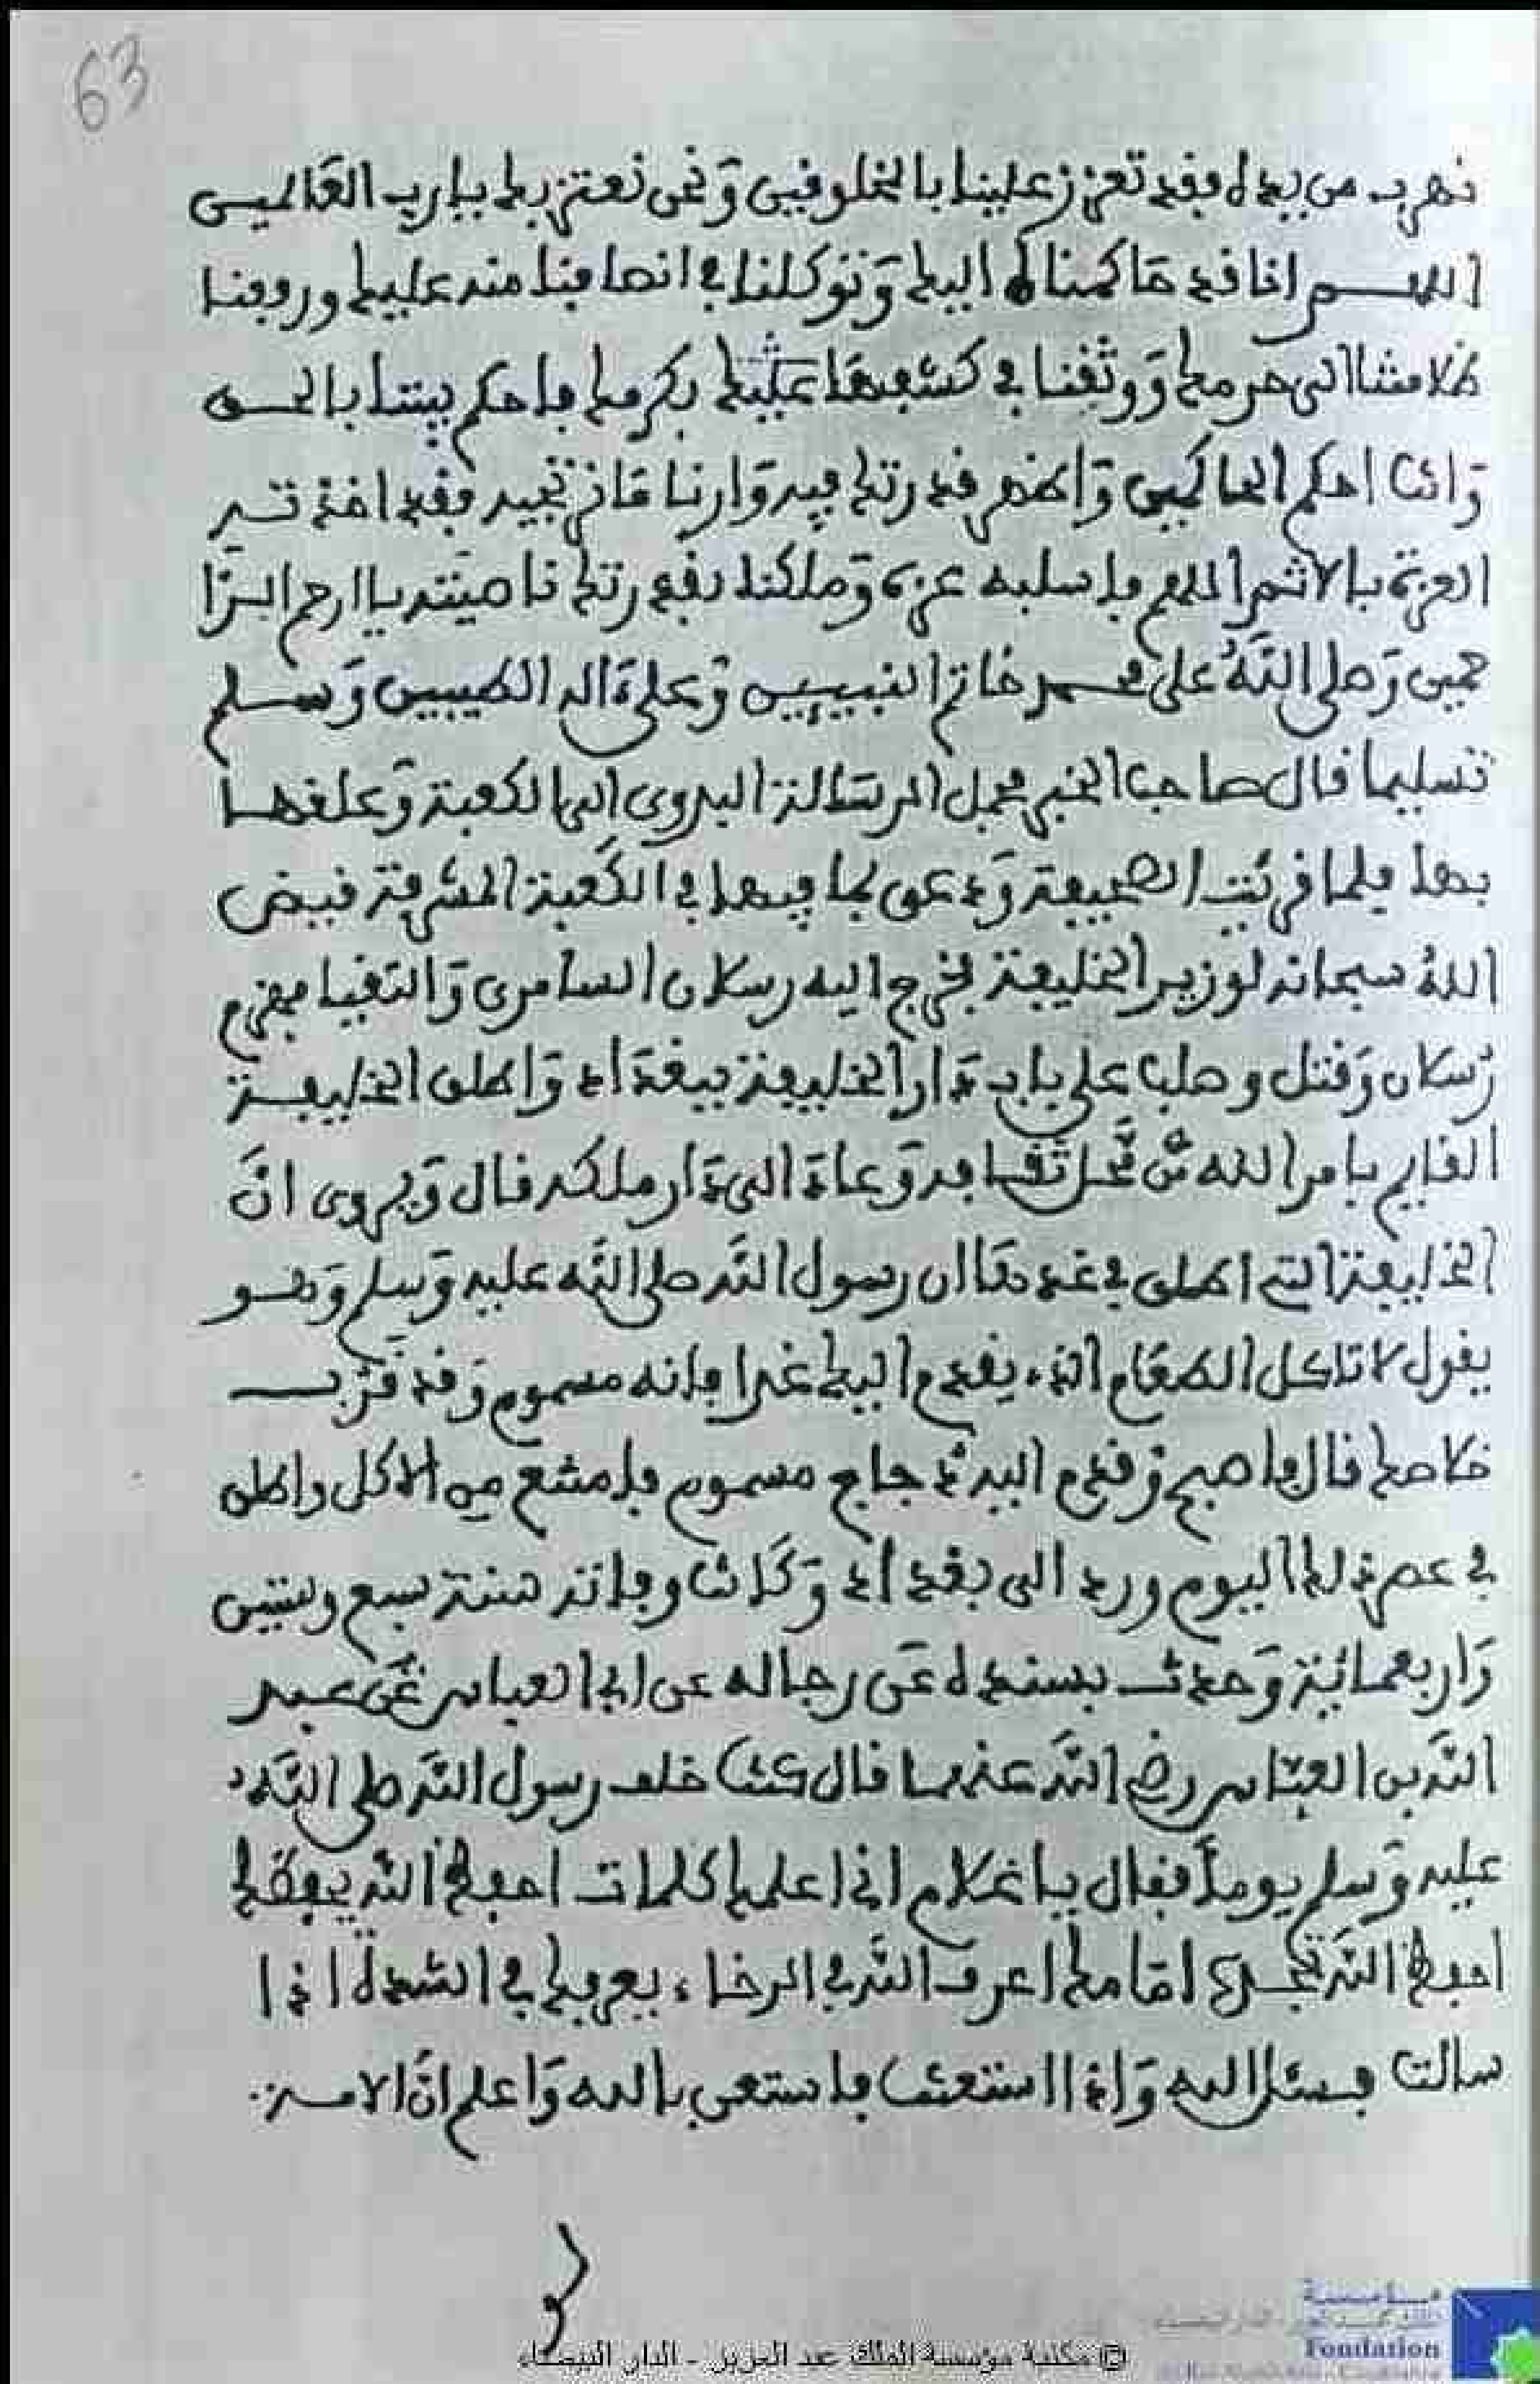 63
نهرب من يده فقد تعزز علينا بالمخلوفين وَنحن نعتز بك يارب العَالمين
اللهم انا قد حَاكمناه اليك وَتوكلنا في انصافنا منه عليك ورفعنا
ظلامتنا الى حرمك وَوثقنا في كشفها عَليك بكرمك فاحكم بيننا بالحق
وَانت احكم الحاكمين وَاظهر قدرتك فيه وَارنا مَا نرتجيه فقد اخذته
العزة بالاثم اللهم فاسلبه عزه وَملكنا بقدرتك ناصيته ياارحم الرَّا
حمين وَصلى اللَّهُ على محمد خاتم النبيين وَعلى ءَاله الطيبين وَسلم
تسليما قال صاحب الخبر فحمل الرسَالة البدوى الى الكعبة وَعلقها
بها فلما قرئت الصحيفة وَدعى بما فيها في الكَعبة المشرفة فبيض
اللهُ سبحانه لوزير الخليفة فخرج اليه رسلان السامرى وَالتقيا فهزم
رُسلان وَقتل وصلب على باب دَار الخليفة ببغدَاد وَاطلق الخليفة
القايم بامر الله من محل ثقافه وَعادَ الى دَار ملكه قال وَيروى انَّ
الخليفة التي اطلق في غدها ان رسول اللَّه صلى اللَّه عليه وَسلم وَهو
يقول لا تاكل الطعَام الذي يقدم اليك غدا فانه مسموم وَقد قَرُب
خلاصك قال فاصبح وَقدم اليه دجاج مسموم فامتنع من الاكل واطلق
في عصر ذلك اليوم ورد الى بغدَاد وَكَانت وفاته سنة سبع وستين
وَاربعمائة وَحدث بسنده عَن رجاله عن ابي العباس عَن عبد
اللَّه بن العبَّاس رضي اللَّه عنهما قال كنت خلف رسول اللَّه صلى اللَّه
عليه وَسلم يوماً فقال يا غلام اني اعلمك كلمات احفظ اللَّه يحفظك
احفظ اللَّه تجده امَامك اعرف اللَّه في الرخاء يعرفك في الشدة اذا
سالت فسئل الله وَاذا استعنت فاستعن بالله وَاعلم انَّ الامة
لو
© مكتبة مؤسسة الملك عبد العزيز - الدار البيضاء
مؤسسة
Fondation